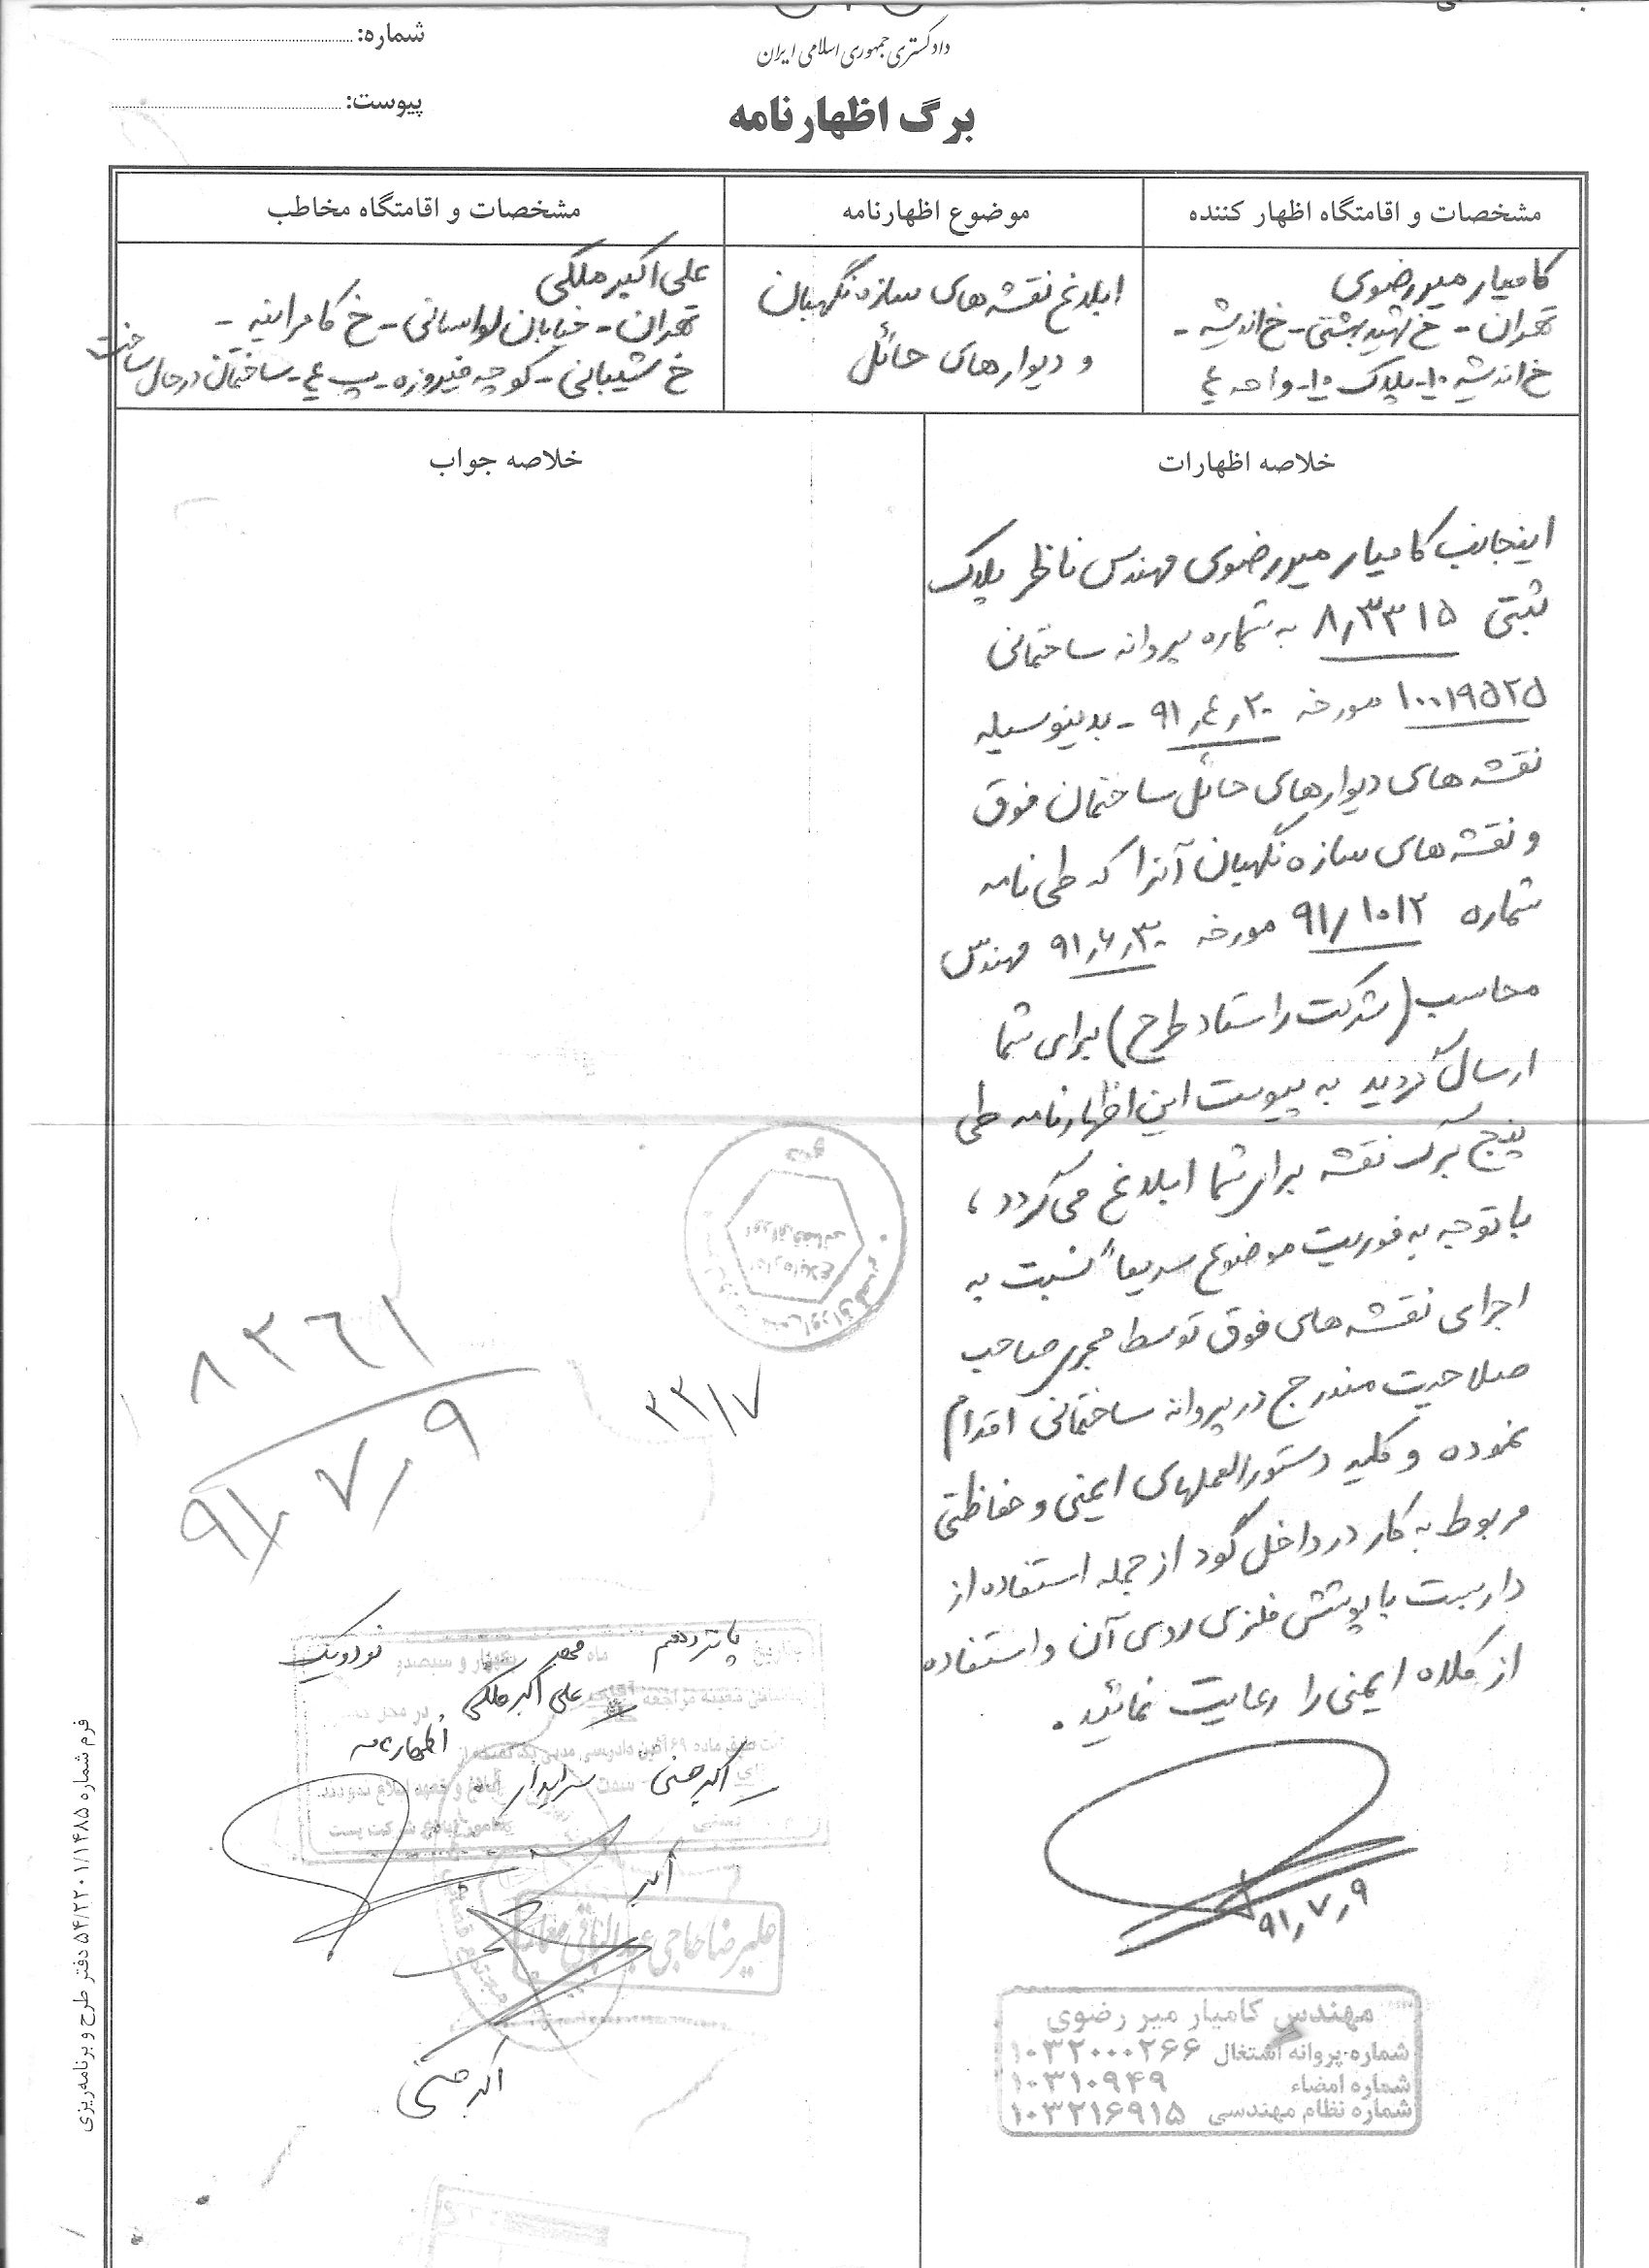 شماره:
پیوست:
دادگستری جمهوری اسلامی ایران
برگ اظهارنامه
مشخصات و اقامتگاه اظهار کننده
موضوع اظهارنامه
مشخصات و اقامتگاه مخاطب
کامیار میررضوی
تهران - خ شهید بهشتی - خ اندیشه -
خ اندیشه ۱۰ - پلاک ۱۰ - واحد ۴
ابلاغ نقشه های سازه نگهبان
و دیوارهای حائل
علی اکبر ملکی
تهران - خیابان لواسانی - خ کامرانیه -
خ شیبانی - کوچه فیروزه - پ ۴ - ساختمان در حال ساخت
خلاصه اظهارات
خلاصه جواب
اینجانب کامیار میررضوی مهندس ناظر پلاک
ثبتی ۸٫۳۳۱۵ به شماره پروانه ساختمانی
۱۰۰۱۹۵۲۵ مورخه ۹۱٫۴٫۲۰ - بدینوسیله
نقشه های دیوارهای حائل ساختمان فوق
و نقشه های سازه نگهبان آنرا که طی نامه
شماره ۹۱/۱۰۱۲ مورخه ۹۱٫۶٫۳۰ مهندس
محاسب (شرکت راستاد طرح) برای شما
ارسال گردید به پیوست این اظهارنامه طی
پنج برگ نقشه برای شما ابلاغ می گردد ،
با توجه به فوریت موضوع سریعاً نسبت به
اجرای نقشه های فوق توسط مجری صاحب
صلاحیت مندرج در پروانه ساختمانی اقدام
نموده و کلیه دستورالعملهای ایمنی و حفاظتی
مربوط به کار در داخل گود از جمله استفاده از
داربست با پوشش فلزی روی آن و استفاده
از کلاه ایمنی را رعایت نمائید .
۹۱٫۷٫۹
مهندس کامیار میر رضوی
شماره پروانه اشتغال ۱۰۳۲۰۰۰۲۶۶
شماره امضاء ۱۰۳۱۰۹۴۹
شماره نظام مهندسی ۱۰۳۲۱۶۹۱۵
۸۳۶۱
۹۱٫۷٫۹
۳۳/۷
پانزدهم مهر نود و یک
علی اکبر ملکی
اظهارنامه
اکبر حسنی سرایدار
علیرضا حاجی عبدالباقی
اکبر حسنی
فرم شماره ۵۴/۲۲۰۱/۱۴۸۵ دفتر طرح و برنامه‌ریزی